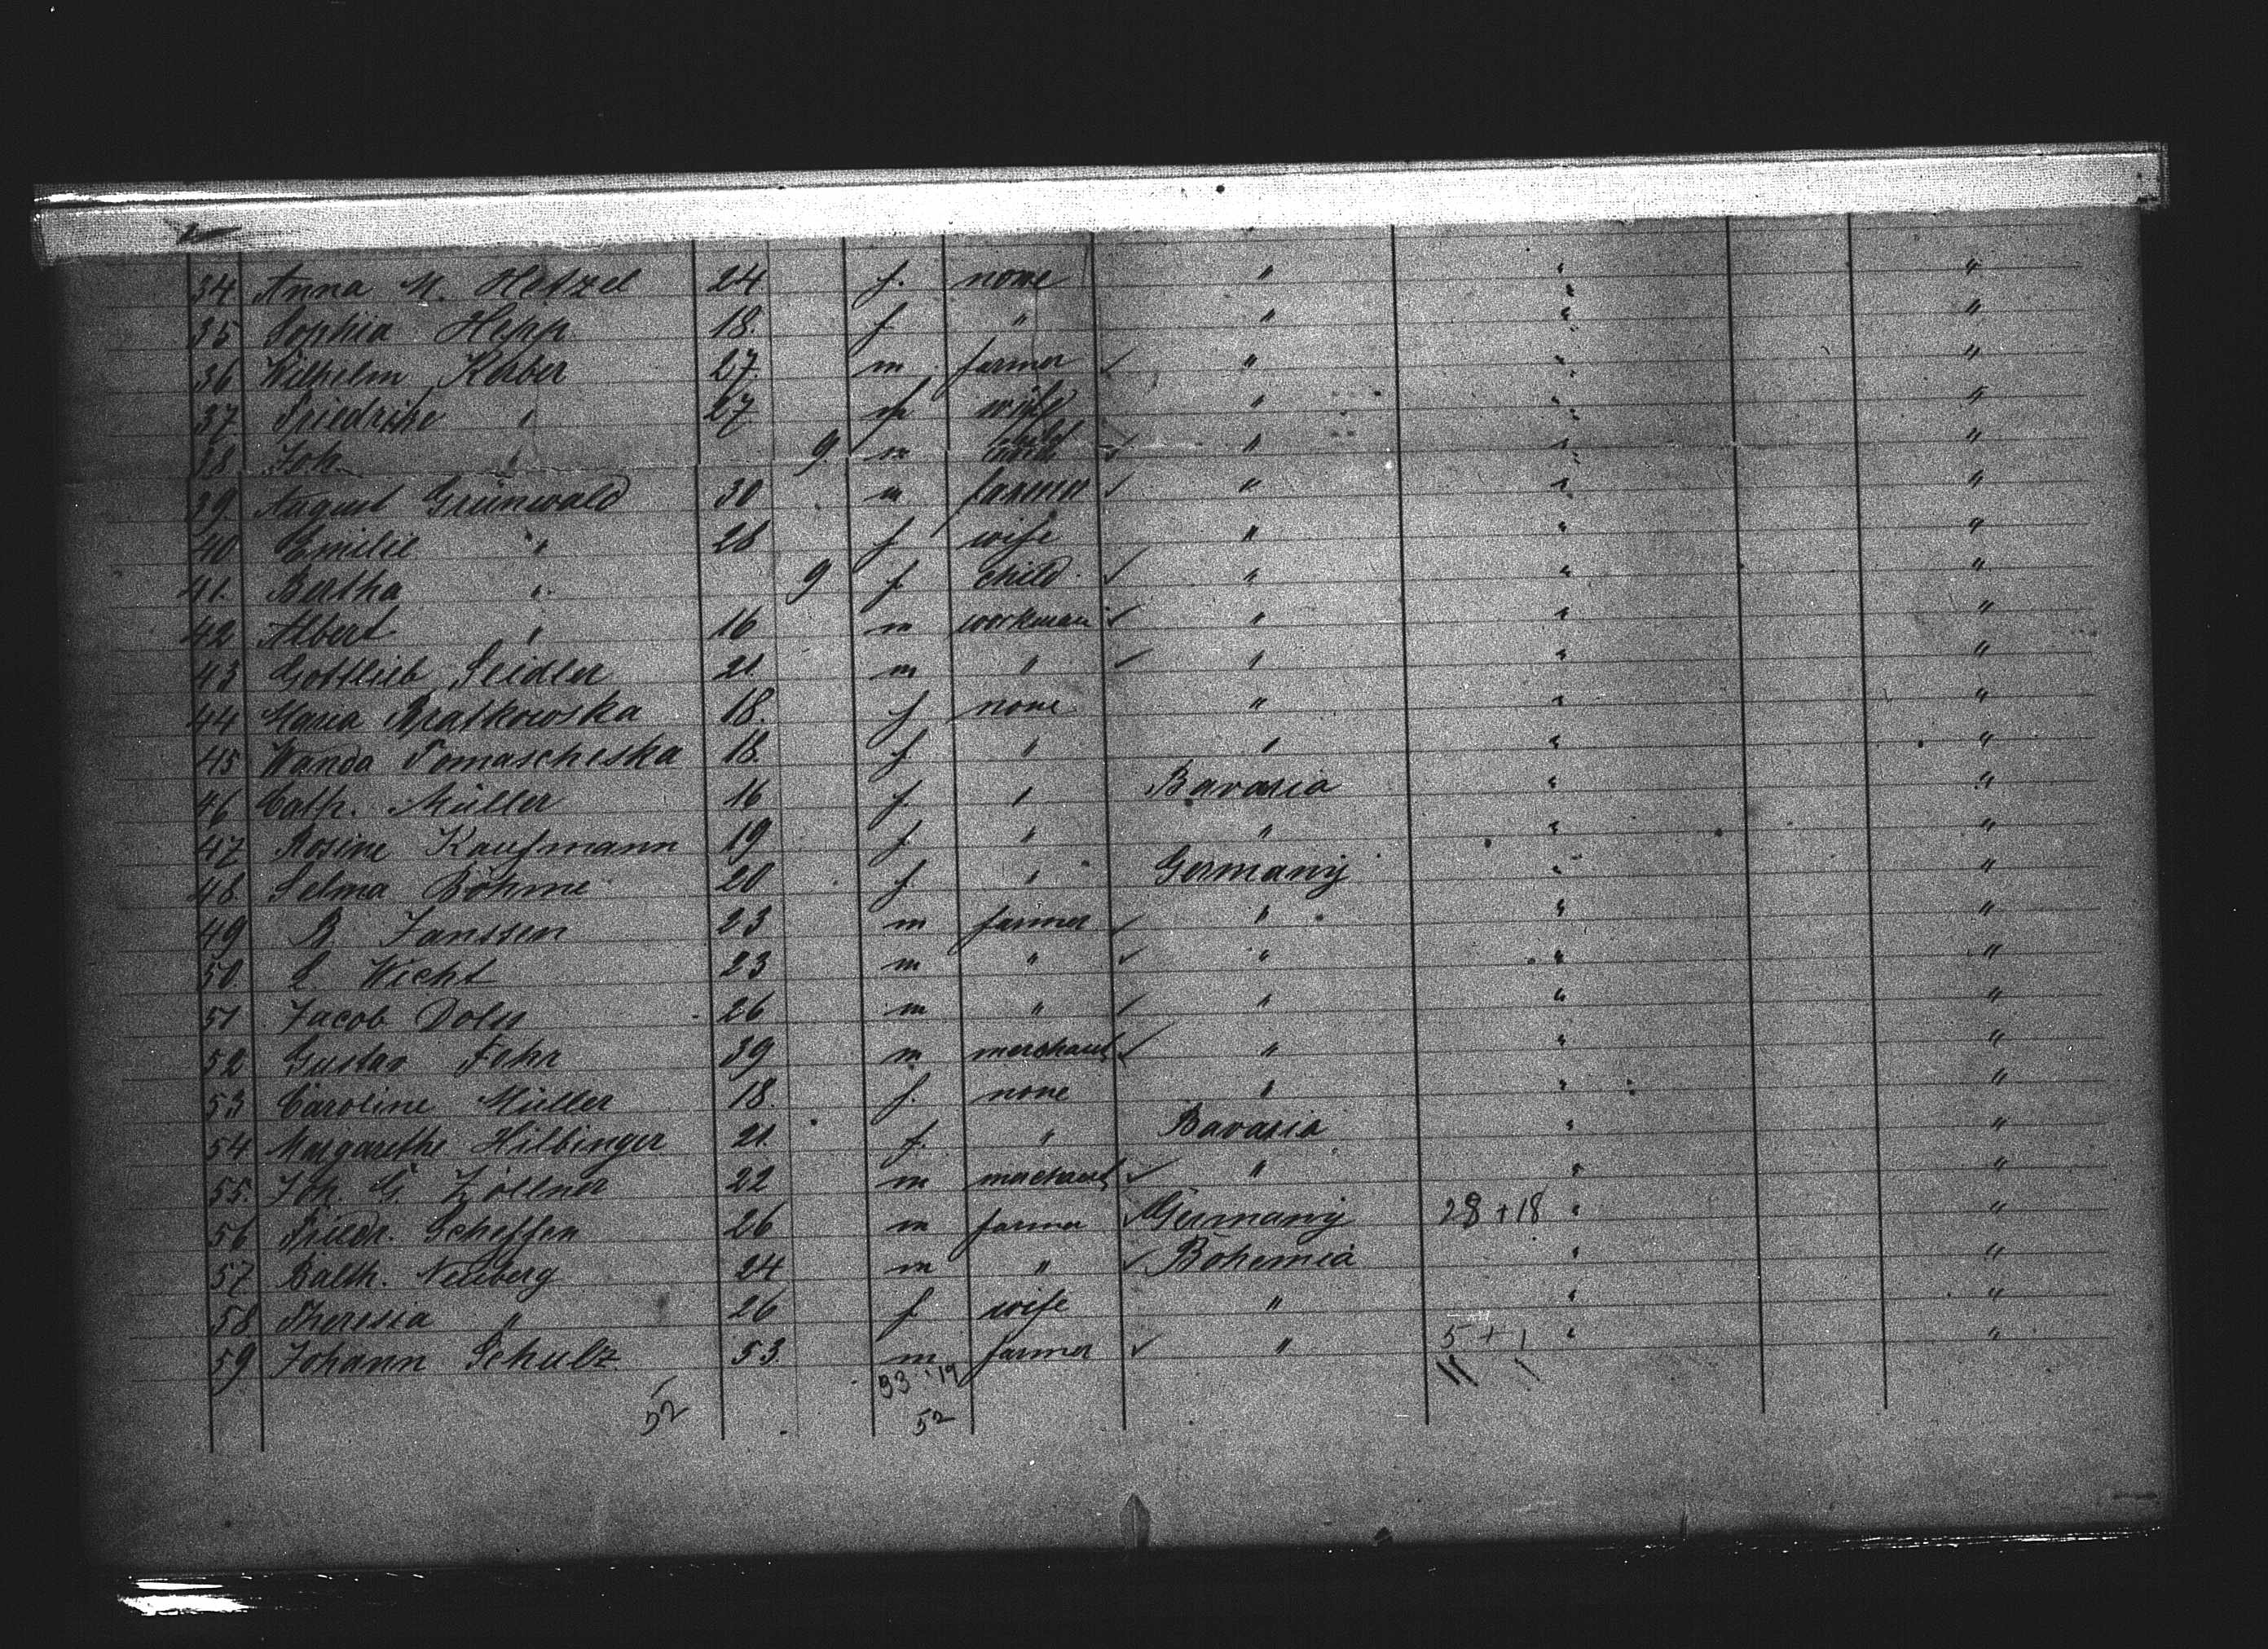 34 Anna M. Hetzel 24 f. none " " "
35 Sophia 18. f " " " "
36 Wilhelm Körber 27. m farmer ✓ " " "
37 Friedrike " 27 f wife " " "
38 Joh. " 9. m child ✓ " " "
39. August Grünwald 30 m farmer ✓ " " "
40 Emilie " 28 f wife " " "
41. Bertha " 9 f child. ✓ " " "
42 Albert " 16 m workman ✓ " " "
43 Gottlieb Seidler 21. m " ✓ " " "
44 Maria Bratkowska 18. f none " " "
45 Wanda Tomascheska 18. f " " " "
46 Cath. Müller 16 f. " Bavaria " "
47 Rosine Kaufmann 19 f. " " " "
48. Selma Böhme 20 f. " Germany " "
49 B Janssen 23 m farmer ✓ " " "
50. L. Wicht 23 m " ✓ " " "
51 Jacob 26 m " ✓ " " "
52 Gustav Fehr 39 m merchant ✓ " " "
53 Caroline Müller 18. f. none " " "
54 Margarethe Hilbinger 21. f. " Bavaria " "
55. Joh. G. Zöllner 22 m merchant ✓ " " "
56 Friedr. Scheffen 26 m farmer ✓ Germany 28 + 18 " "
57 Balth. Neuberg 24 m " ✓ Bohemia " "
58 Theresia " 26 f wife " " "
59 Johann Schulz 53. m farmer ✓ " 5 + 1 " "
33 19
52 52